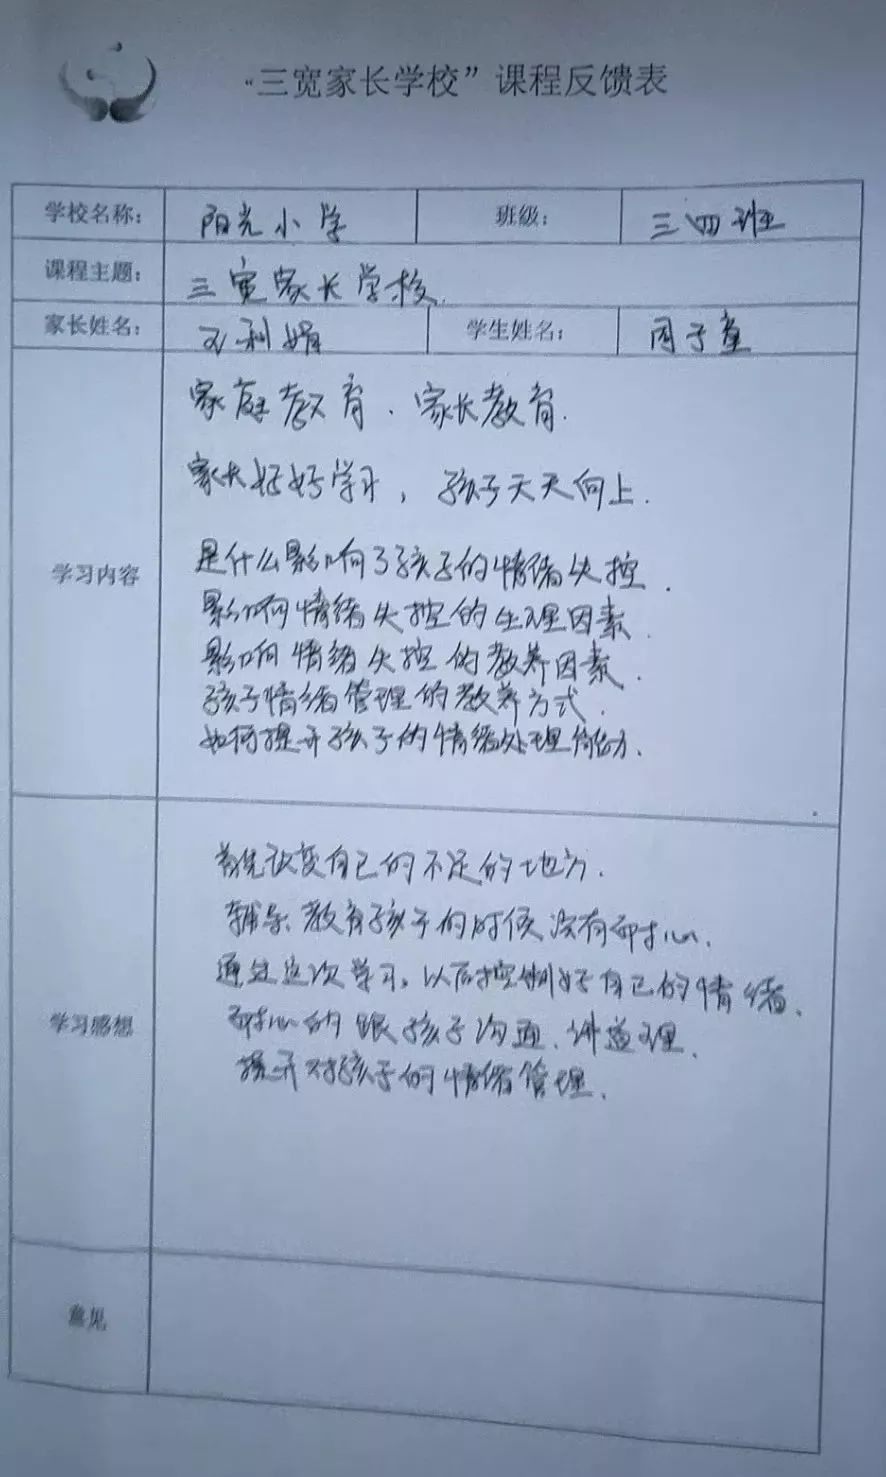 “三宽家长学校”课程反馈表
学校名称： 阳光小学 班级： 三四班
课程主题： 三宽家长学校.
家长姓名： 刘利娟 学生姓名： 周子童
学习内容
家庭教育、家长教育.
家长好好学习，孩子天天向上.
是什么影响了孩子的情绪失控.
影响情绪失控的生理因素.
影响情绪失控的教养因素.
孩子情绪管理的教养方式.
如何提升孩子的情绪处理能力.
学习感想
首先改变自己的不足的地方.
辅导教育孩子的时候没有耐心.
通过这次学习，以后控制好自己的情绪、
耐心的跟孩子沟通、讲道理.
提升对孩子的情绪管理.
意见